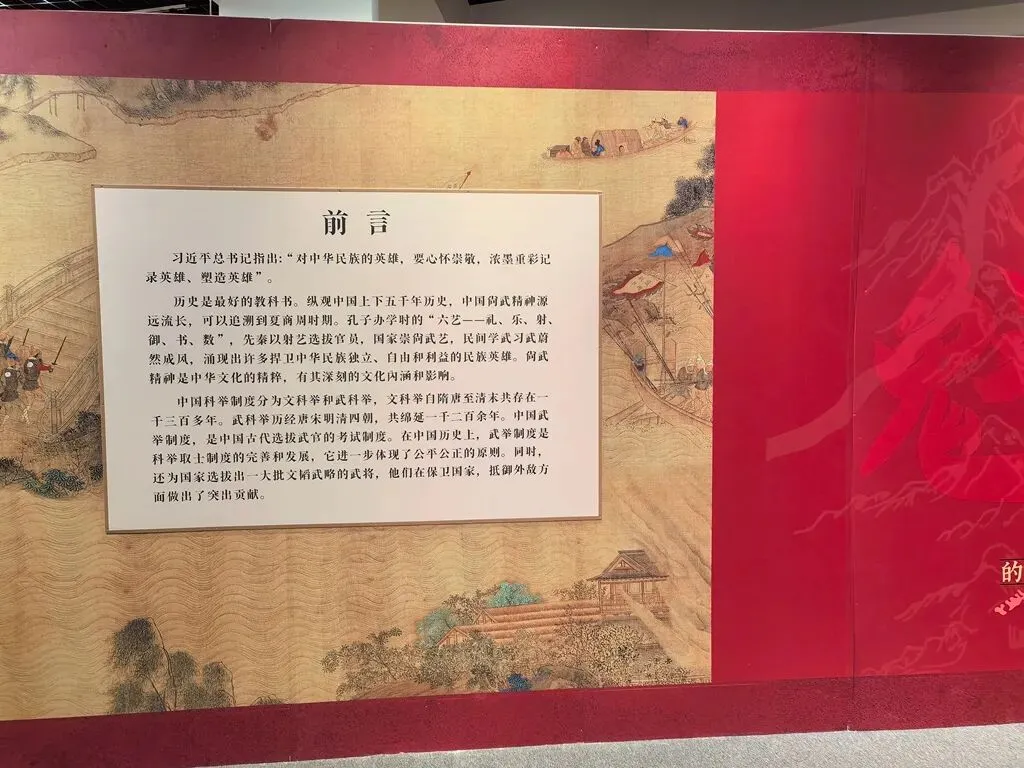 前言
习近平总书记指出：“对中华民族的英雄，要心怀崇敬，浓墨重彩记
录英雄、塑造英雄”。
历史是最好的教科书。纵观中国上下五千年历史，中国尚武精神源
远流长，可以追溯到夏商周时期。孔子办学时的“六艺——礼、乐、射、
御、书、数”，先秦以射艺选拔官员，国家崇尚武艺，民间学武习武蔚
然成风，涌现出许多捍卫中华民族独立、自由和利益的民族英雄。尚武
精神是中华文化的精粹，有其深刻的文化内涵和影响。
中国科举制度分为文科举和武科举，文科举自隋唐至清末共存在一
千三百多年。武科举历经唐宋明清四朝，共绵延一千二百余年。中国武
举制度，是中国古代选拔武官的考试制度。在中国历史上，武举制度是
科举取士制度的完善和发展，它进一步体现了公平公正的原则。同时，
还为国家选拔出一大批文韬武略的武将，他们在保卫国家，抵御外敌方
面做出了突出贡献。
的